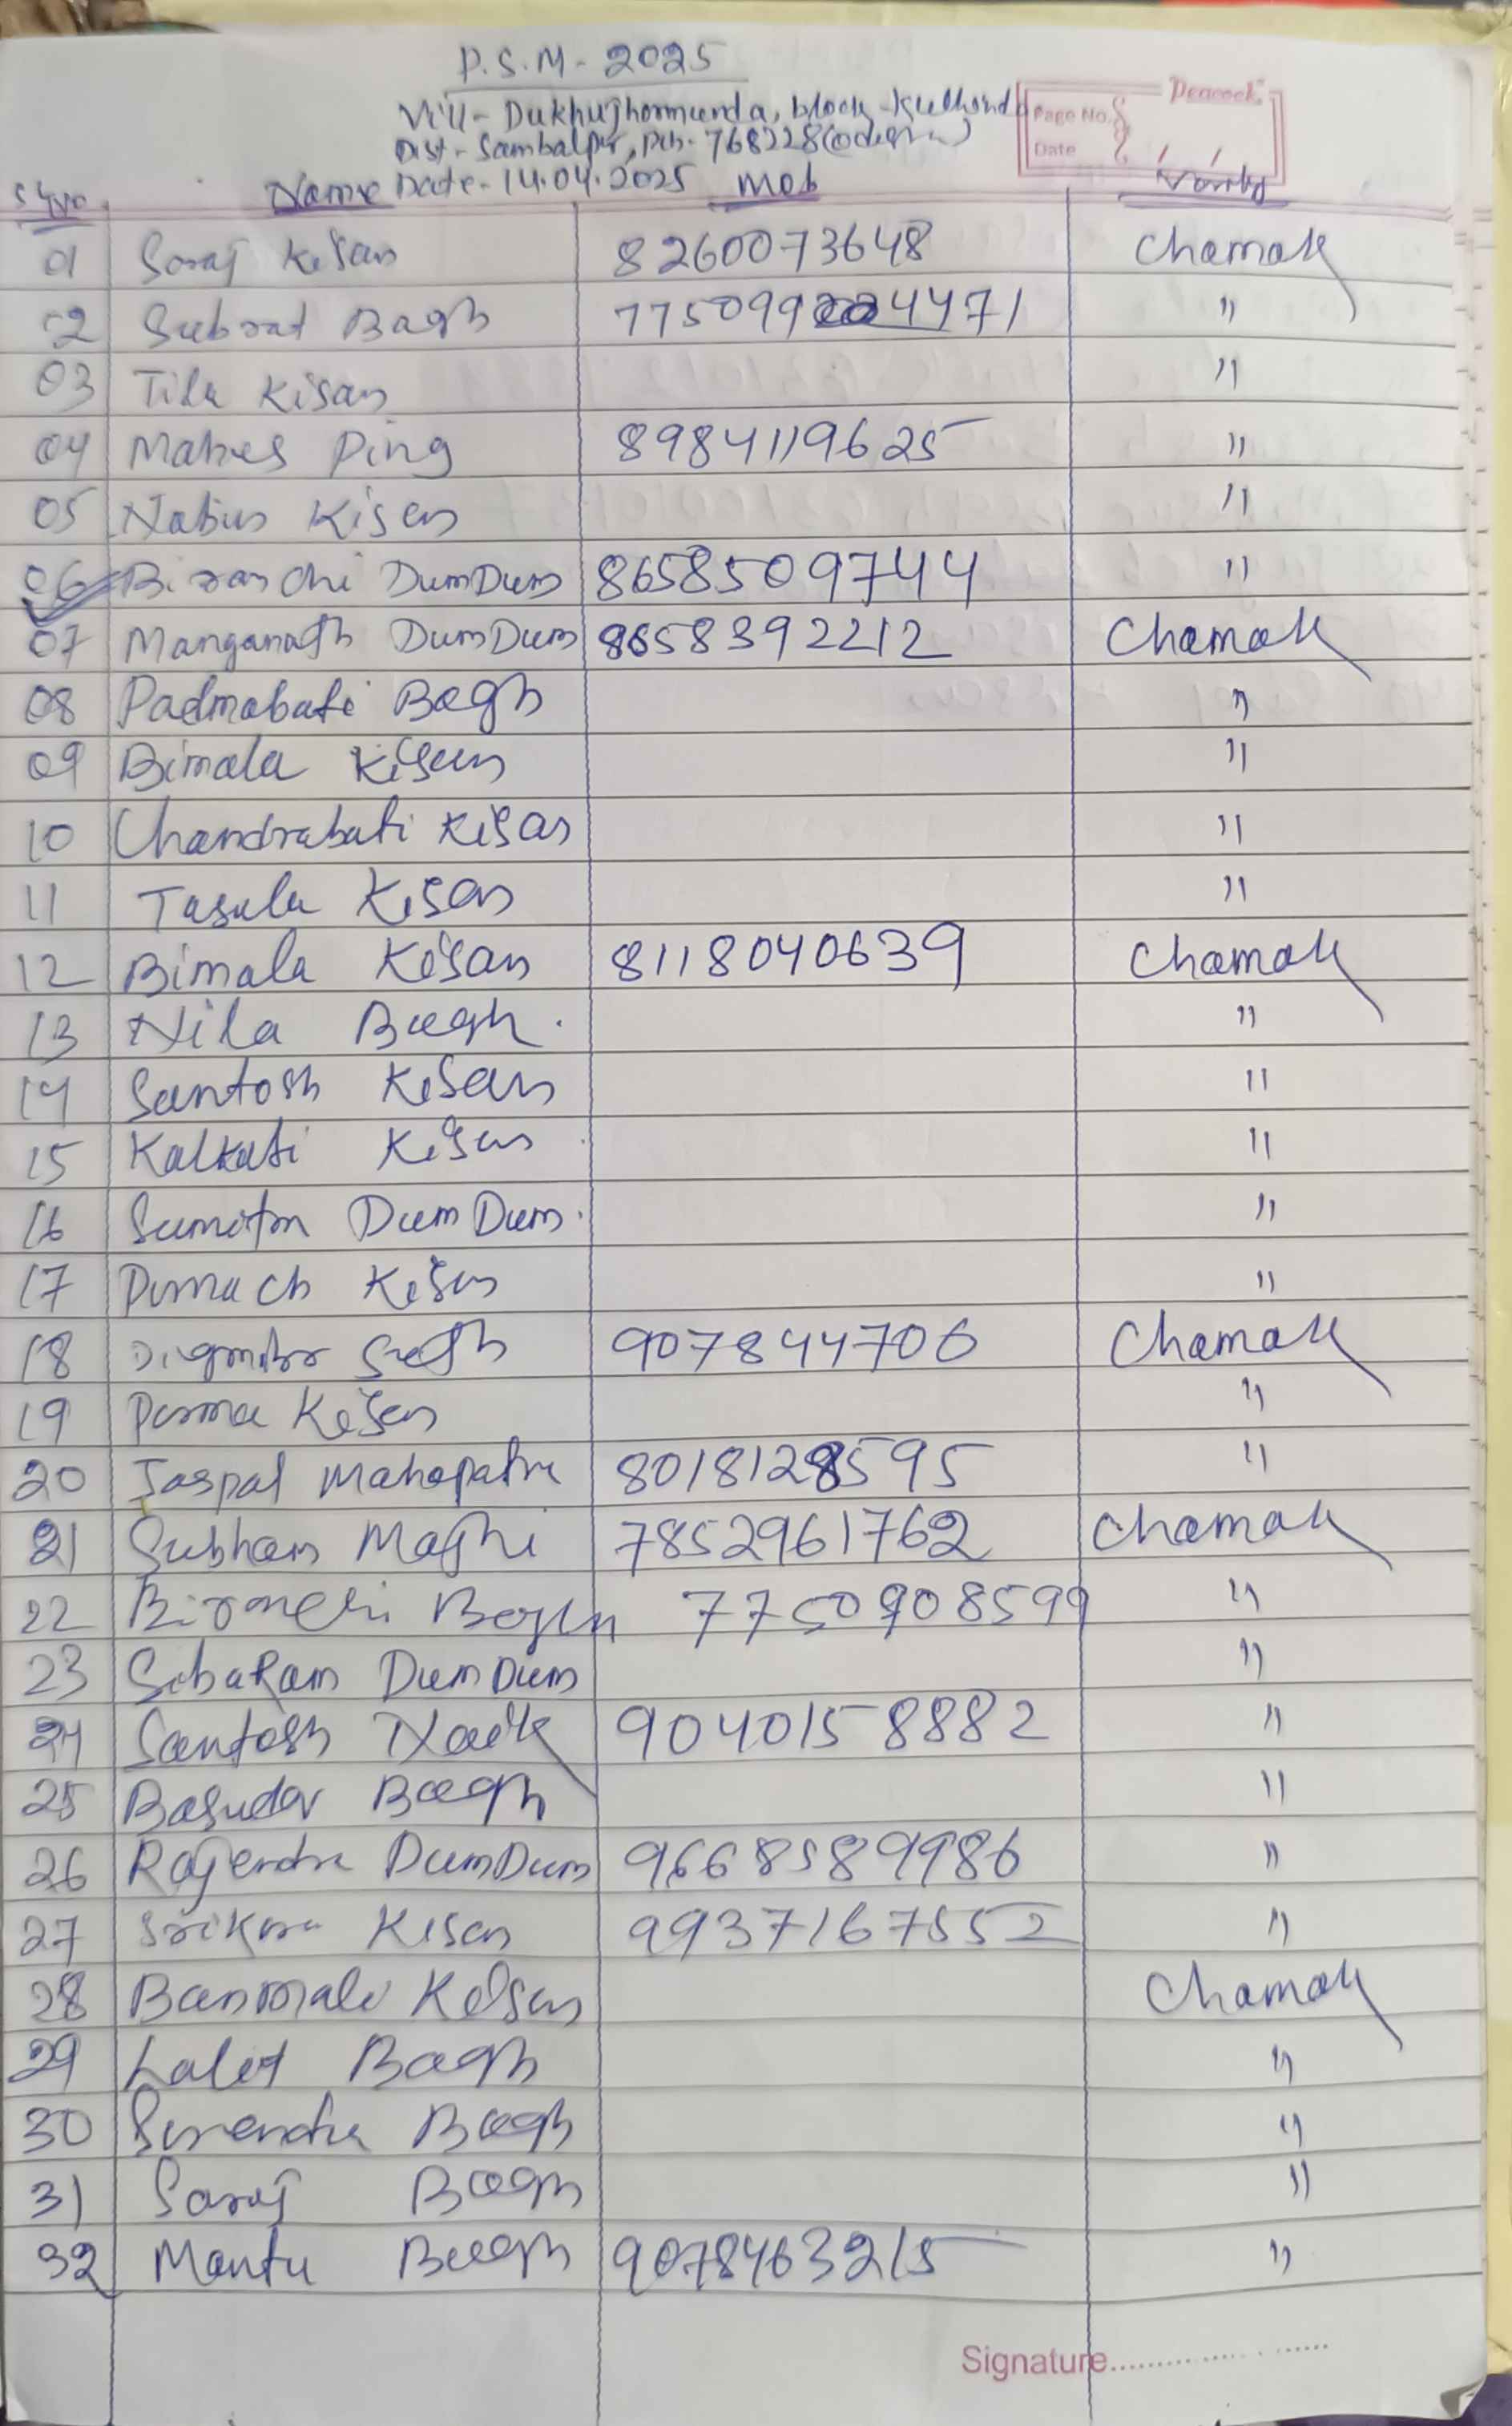 P.S.M - 2025
Vill - Dukhujhormunda, block - Kuchinda
Peacock
Page No. 8
Dist - Sambalpur, Pin - 768228 (Odisha)
Date
Sl no. Name Date - 14.04.2025 Mob Verity
01 Soraj Kisan 8260073648 Chamak
02 Subrat Bagh 775099 4471 "
03 Tila Kisan "
04 Mahes Ping 8984119625 "
05 Nabin Kisan "
06 Biranchi DumDum 8658509744 "
07 Manganath DumDum 8658392212 Chamak
08 Padmabati Bagh "
09 Bimala Kisan "
10 Chandrabati Kisan "
11 Tasula Kisan "
12 Bimala Kisan 8118040639 Chamak
13 Nila Bagh. "
14 Santosh Kisan "
15 Kalkati Kisan "
16 Sumitra DumDum. "
17 Kisan "
18 907844706 Chamak
19 Purna Kisan "
20 Jaspal Mahapatra 8018128595 "
21 Subham Majhi 7852961762 Chamak
22 7750908599 "
23 SibaRam DumDum "
24 Santosh Naik 9040158882 "
25 Basudev Bagh "
26 Rajendra DumDum 9668589986 "
27 Kisan 9937167552 "
28 Banmali Kisan Chamak
29 Lalit Bagh "
30 Surendra Bagh "
31 Saroj Bagh "
32 Mantu Bagh 9078463215 "
Signature